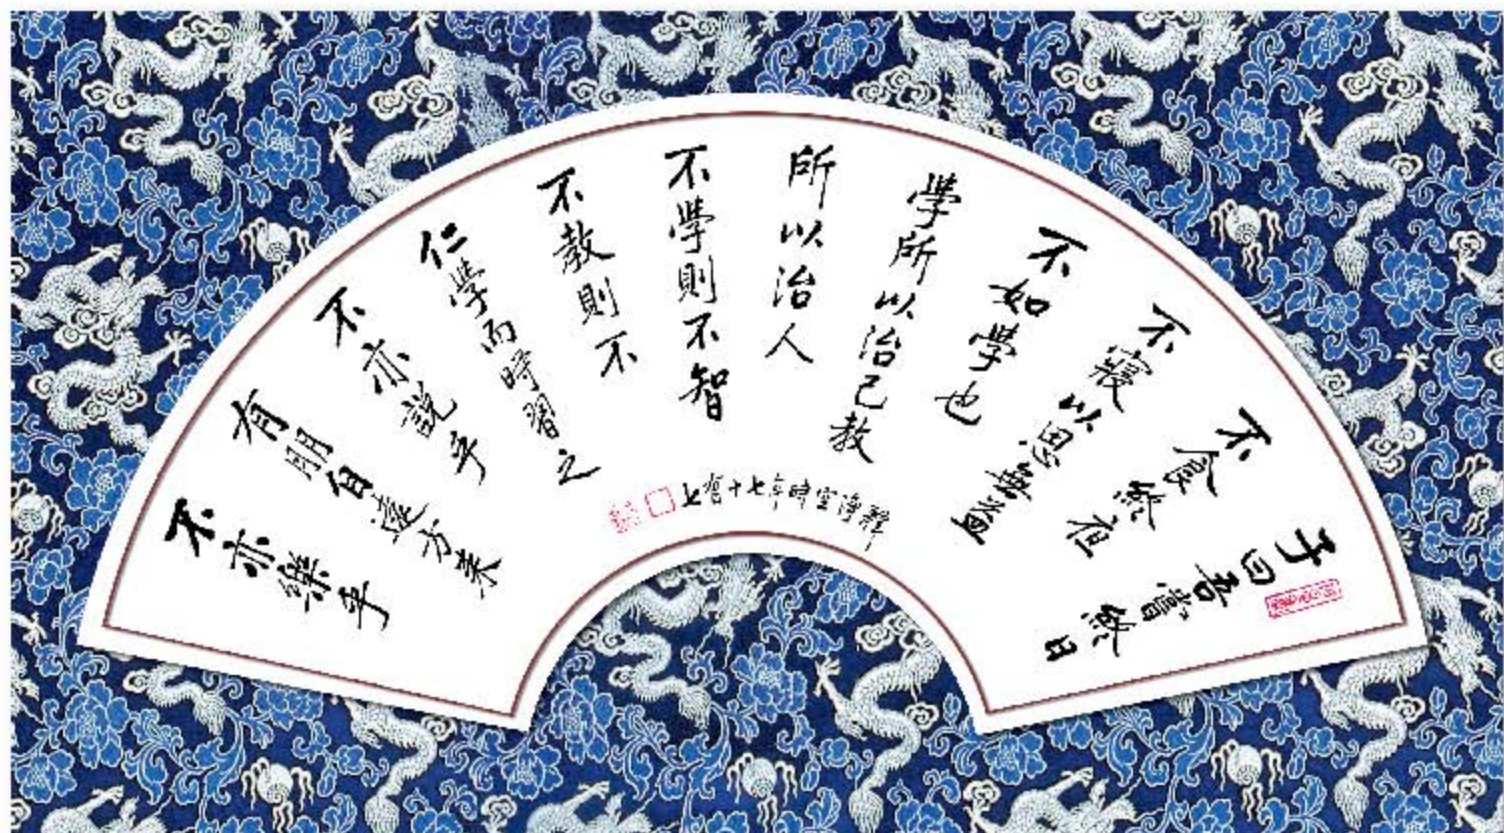 子曰吾嘗終日
不食終夜
不寢以思無益
不如學也
學所以治己教
所以治人
不學則不智
不教則不
仁學而時習之
不亦說乎
有朋自遠方來
不亦樂乎
時年七十有七